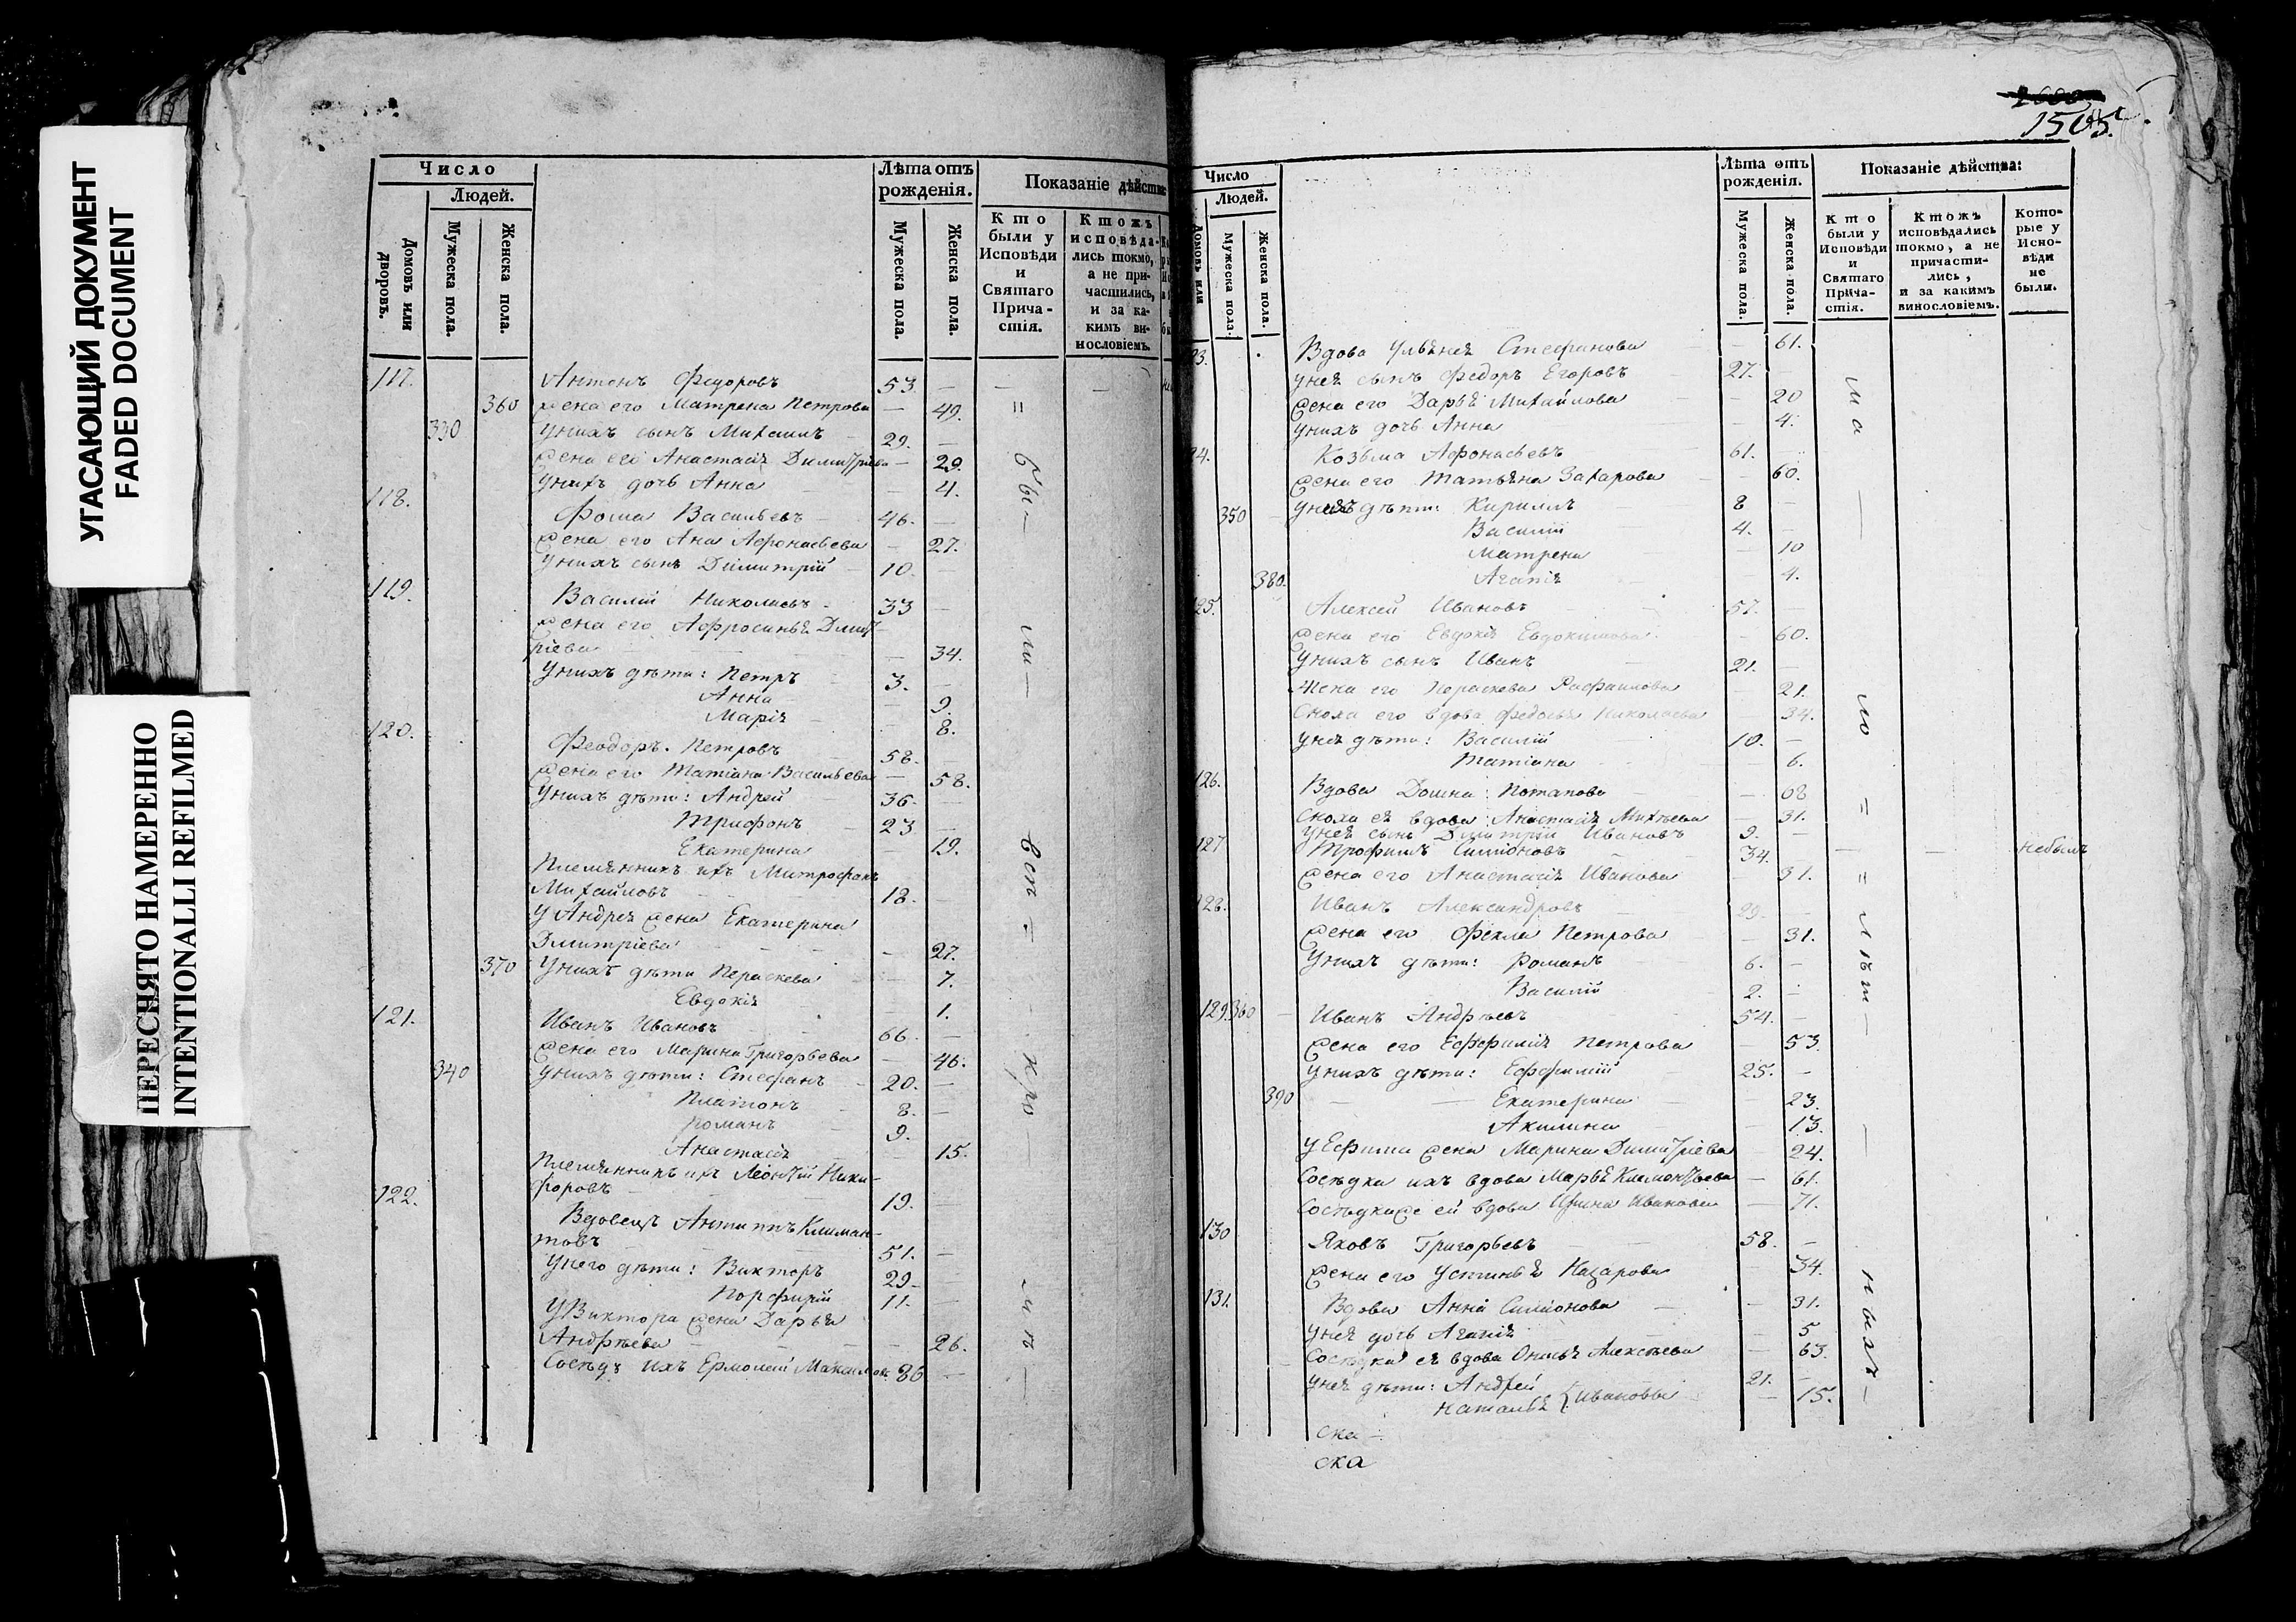 УГАСАЮЩИЙ ДОКУМЕНТ
FADED DOCUMENT
ПЕРЕСНЯТО НАМЕРЕННО
INTENTIONALLI REFILMED
Число
Людей.
Домовъ или дворовъ.
Мужеска пола.
Женска пола.
Лѣта отъ рожденія.
Мужеска пола.
Женска пола.
Показаніе дѣйства:
Кто были у Исповѣди и Святаго Причастія.
Ктожъ исповѣдались токмо, а не причастились, и за какимъ винословіемъ.
117. Антонъ Федоровъ 53. — — —
360 Жена его Матрена Петрова — 49. "
330 У нихъ сынъ Михаилъ 29. —
Жена его Анастасія Димитріева — 29.
У нихъ дочь Анна — 4.
118. Фома Васильевъ 46. —
Жена его Ана Афонасьева — 27.
У нихъ сынъ Димитрій 10. —
119. Василій Николаевъ 33 —
Жена его Афросинья Дмит-
ріева — 34.
У нихъ дѣти: Петръ 3. —
Анна — 9.
Марія — 8.
120. Феодоръ Петровъ 58. —
Жена его Татіана Васильева — 58.
У нихъ дѣти: Андрей 36. —
Трифонъ 23 —
Екатерина — 19.
Племянникъ ихъ Митрофанъ
Михайловъ 18. —
У Андрея жена Екатерина
Дмитріева — 27.
370 У нихъ дѣти Пераскева — 7.
Евдокія — 1.
121. Иванъ Ивановъ 66. —
Жена его Марина Григорьева — 46.
340 У нихъ дѣти: Стефанъ 20. —
Платонъ 8. —
Романъ 9.
Анастасія — 15.
Племянникъ ихъ Леонтій Ники-
форовъ 19. —
122. Вдовецъ Антипъ Климан-
товъ 51. —
У него дѣти: Викторъ 29 —
Порфирій 11. —
У Виктора жена Дарья
Андрѣева — 26.
Сосѣдъ ихъ Ермолай Максимовъ 86 —
бы — ли — всѣ = кро — мѣ —
1505.
Число
Людей.
Домовъ или
Мужеска пола.
Женска пола.
Лѣта отъ рожденія.
Мужеска пола.
Женска пола.
Показаніе дѣйства:
Кто были у Исповѣди и Святаго Причастія.
Ктожъ исповѣдались токмо, а не причастились, и за какимъ винословіемъ.
Которые у Исповѣди не были.
23. Вдова Ульяна Стефанова — 61.
У нея сынъ Федоръ Егоровъ 27. —
Жена его Дарья Михайлова — 20
У нихъ дочь Анна — 4.
24. Козьма Афонасьевъ 61. —
Жена его Татьяна Захарова — 60.
350 У нихъ дѣти: Кириллъ 8 —
Василій 4. —
Матрена — 10
380. Агапія — 4.
25. Алексей Ивановъ 57. —
Жена его Евдокія Евдокимова — 60.
У нихъ сынъ Иванъ 21. —
Жена его Пераскева Рафаилова — 21.
Сноха его вдова Федосья Николаева — 34.
У нея дѣти: Василій 10. —
Татіана — 6.
126. Вдова Домна Потапова — 68
Сноха ея вдова Анастасія Михѣева — 31.
У нея сынъ Дмитрій Ивановъ 9. —
127 Трофимъ Симіоновъ 34. — — — небылъ
Жена его Анастасія Иванова — 31. =
128. Иванъ Александровъ 29. —
Жена его Фекла Петрова — 31.
У нихъ дѣти: Романъ 6. —
Василій 2. —
129. 360 Иванъ Андрѣевъ 54. —
Жена его Евфимія Петрова — 53.
У нихъ дѣти: Ефимій 25. —
390 Екатерина — 23.
Акилина — 13.
У Ефима жена Марина Димитріева — 24.
Сосѣдка ихъ вдова Марья Климонтьева — 61.
Сосѣдкаже ей вдова Ирина Иванова — 71.
130 Яковъ Григорьевъ 58. —
Жена его Устинья Назарова 34.
131. Вдова Анна Симіонова — 31.
У нея дочь Агапія — 5
Сосѣдка ея вдова Алексѣева — 63.
У нея дѣти: Андрей 21. —
Наталья } Ивановы — 15.
ска —
ска
ма — ло = лѣт — ныхъ —